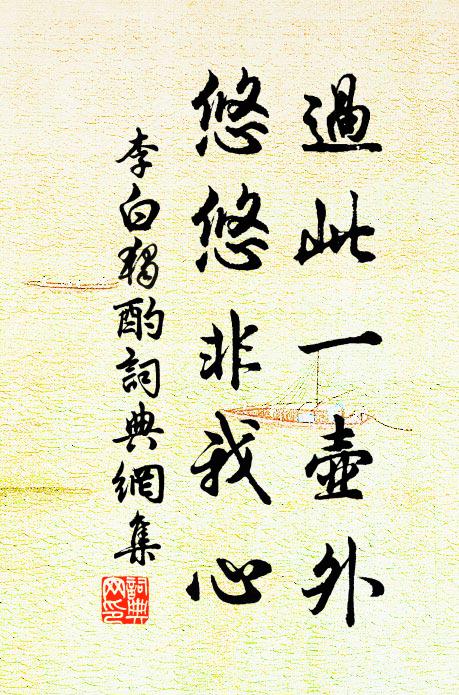 過此一壺外
悠悠非我心
李白獨酌詞典網集
詞典
網印